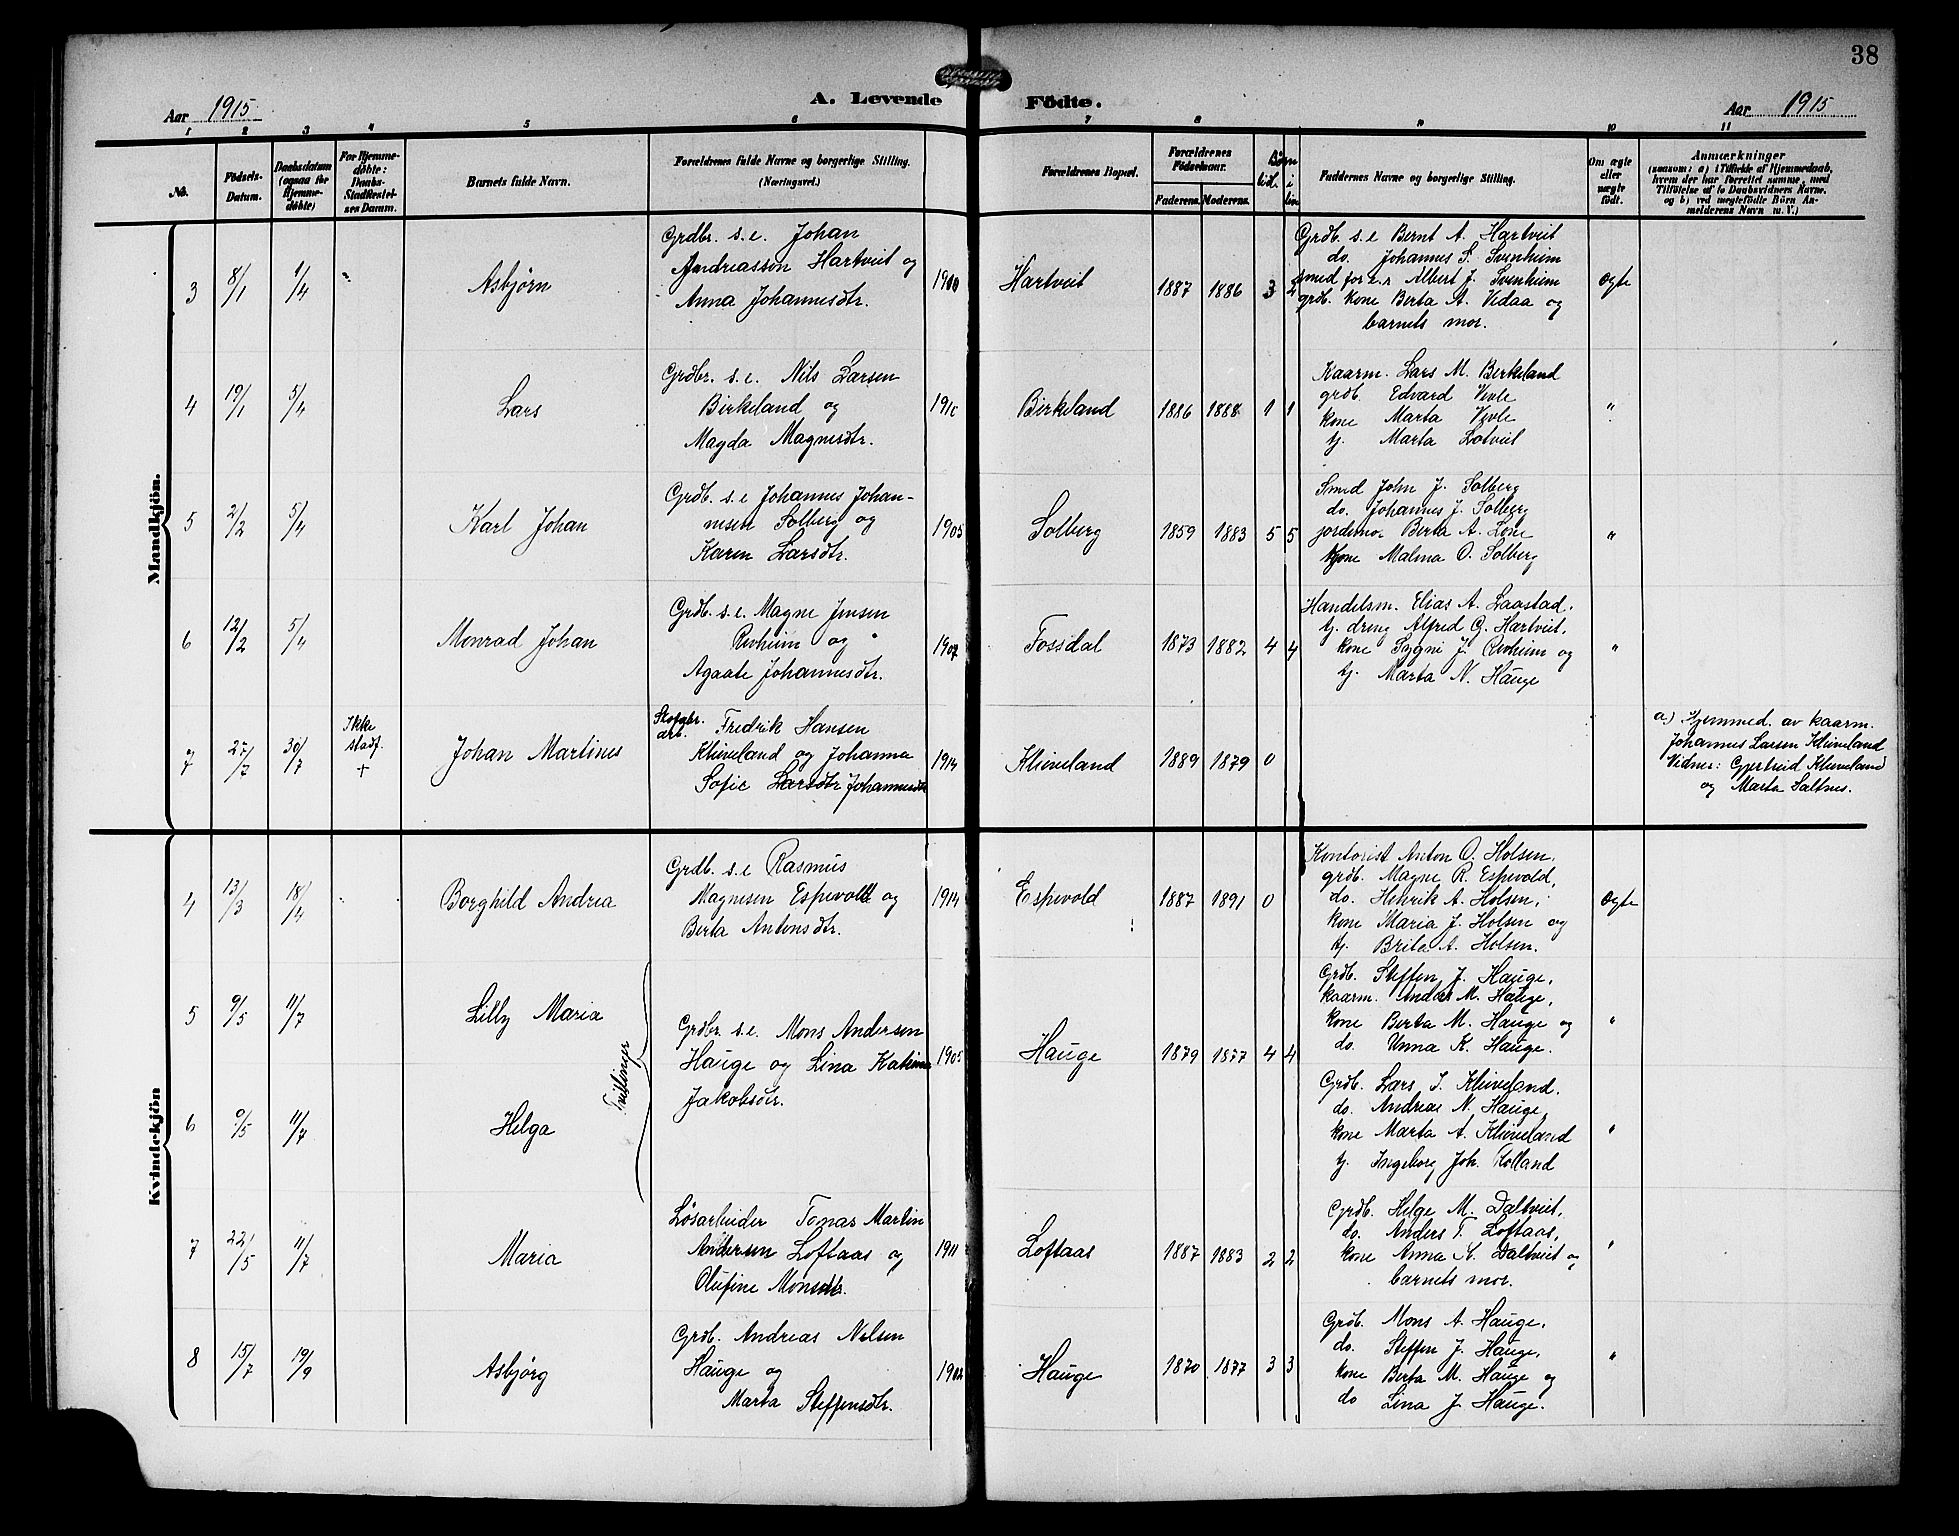 38
Aar 1915
A. Levende Födte.
Aar 1915
1 2 3 4 5 6 7 8 9 10 11
No.
Födsels-
Datum.
Daabsdatum
(ogsaa for
Hjemme-
döbte)
For Hjemme-
döbte:
Daabs-
Stadfæstel-
ses Datum.
Barnets fulde Navn.
Forældrenes fulde Navne og borgerlige Stilling.
(Næringsvei.)
Forældrenes Bopæl.
Forældrenes
Födselsaar.
Faderens. Moderens.
Børn
Faddernes Navne og borgerlige Stilling.
Om ægte
eller
uægte
født.
Anmærkninger
(saasom: a) i Tilfælde af Hjemmedaab,
hvem der har forrettet samme, med
Tilföielse af to Daabsvidners Navne,
og b) ved uægtefödte Börn An-
melderens Navn m. V.)
Mandkjön.
3 8/1 1/4 " Asbjørn
Grdbr. s.e. Johan
Andreassen Hartveit og
Anna Johannesdtr.
1910 Hartveit 1887 1886 3 2
Grdb. s.e Bernt A. Hartveit
do. Johannes S. Svenheim
smed for e.r. Albert J. Svenheim
grdb. kone Berta A. Vedaa og
barnets mor.
Ogte
4 19/1 5/4 Lars
Grdbr. s.e. Nils Larsen
Birkeland og
Magda Magnesdtr.
Birkeland 1886 1888 1 1
Kaarm. Lars M. Birkeland
grdb. Edvard Vevle
kone Marta Vevle
tj. Marta Lotveit
"
5 2/2 5/4 Karl Johan
Grdb. s.e Johannes Johan-
nesen Solberg og
Karen Larsdtr.
1905 Solberg 1859 1883 5 5
Smed John J. Solberg
do. Johannes J. Solberg
jordemor Berta A. Lone
kone Malena O. Solberg
"
6 12/2 5/4 Monrad Johan
Grdb. s.e. Magne Jensen
Revheim og
Agaate Johannesdtr.
1907 Fossdal 1873 1882 4 4
Handelsm. Elias A. Laastad.
tj. dreng Alfred G. Hartveit,
kone Sygni J. Revheim og
tj. Marta N. Hauge
"
7 27/7 30/7
Ikke
stadf.
+
Johan Martines
arb. Fredrik Hansen
Kleiveland og Johanna
Sofie Larsdtr Johannesdtr
1914 Kleiveland 1889 1879 0
a) Hjemmed. av kaarm.
Johannes Larsen Kleiveland
Vidner: Gjertrud Kleiveland
og Marta Saltnes.
Kvindekjön
4 13/3 18/4 Borghild Andrea
Grdb. s.e Rasmus
Magnesen Espevold og
Berta Antonsdtr.
1914 Espevold 1887 1891 0
Kontorist Anton O. Holsen,
grdb. Magne R. Espevold,
do. Henrik A. Holsen,
kone Maria J. Holsen og
tj. Brita A. Holsen.
Ogte
5 9/5 11/7 Lilly Maria
Tvillinger
Grdbr. s.e. Mons Andersen
Hauge og Lina Katrine
Jakobsdtr.
1905 Hauge 1879 1877 4 4
Grdb. Steffen J. Hauge,
kaarm. Anders M. Hauge,
kone Berta M. Hauge og
do. Unna K. Hauge.
"
6 9/5 11/7 Helga
Grdb. Lars J. Kleiveland.
do. Andreas N. Hauge,
kone Marta A. Kleiveland
tj. Ingeborg Joh. Rolland
"
7 22/5 11/7 Maria
Løsarbeider Tomas Martin
Andersen Loftaas og
Olufine Monsdtr.
1911 Loftaas 1887 1883 2 2
Grdb. Helge M. Daltveit,
do. Anders T. Loftaas,
kone Anna A. Daltveit og
barnets mor.
"
8 15/7 19/9 Asbjørg
Grdb. Andreas Nelsen
Hauge og
Marta Steffensdtr.
1902 Hauge 1870 1877 3 3
Grdb. Mons A. Hauge,
do. Steffen J. Hauge,
kone Berta M. Hauge og
do Lina J. Hauge.
"